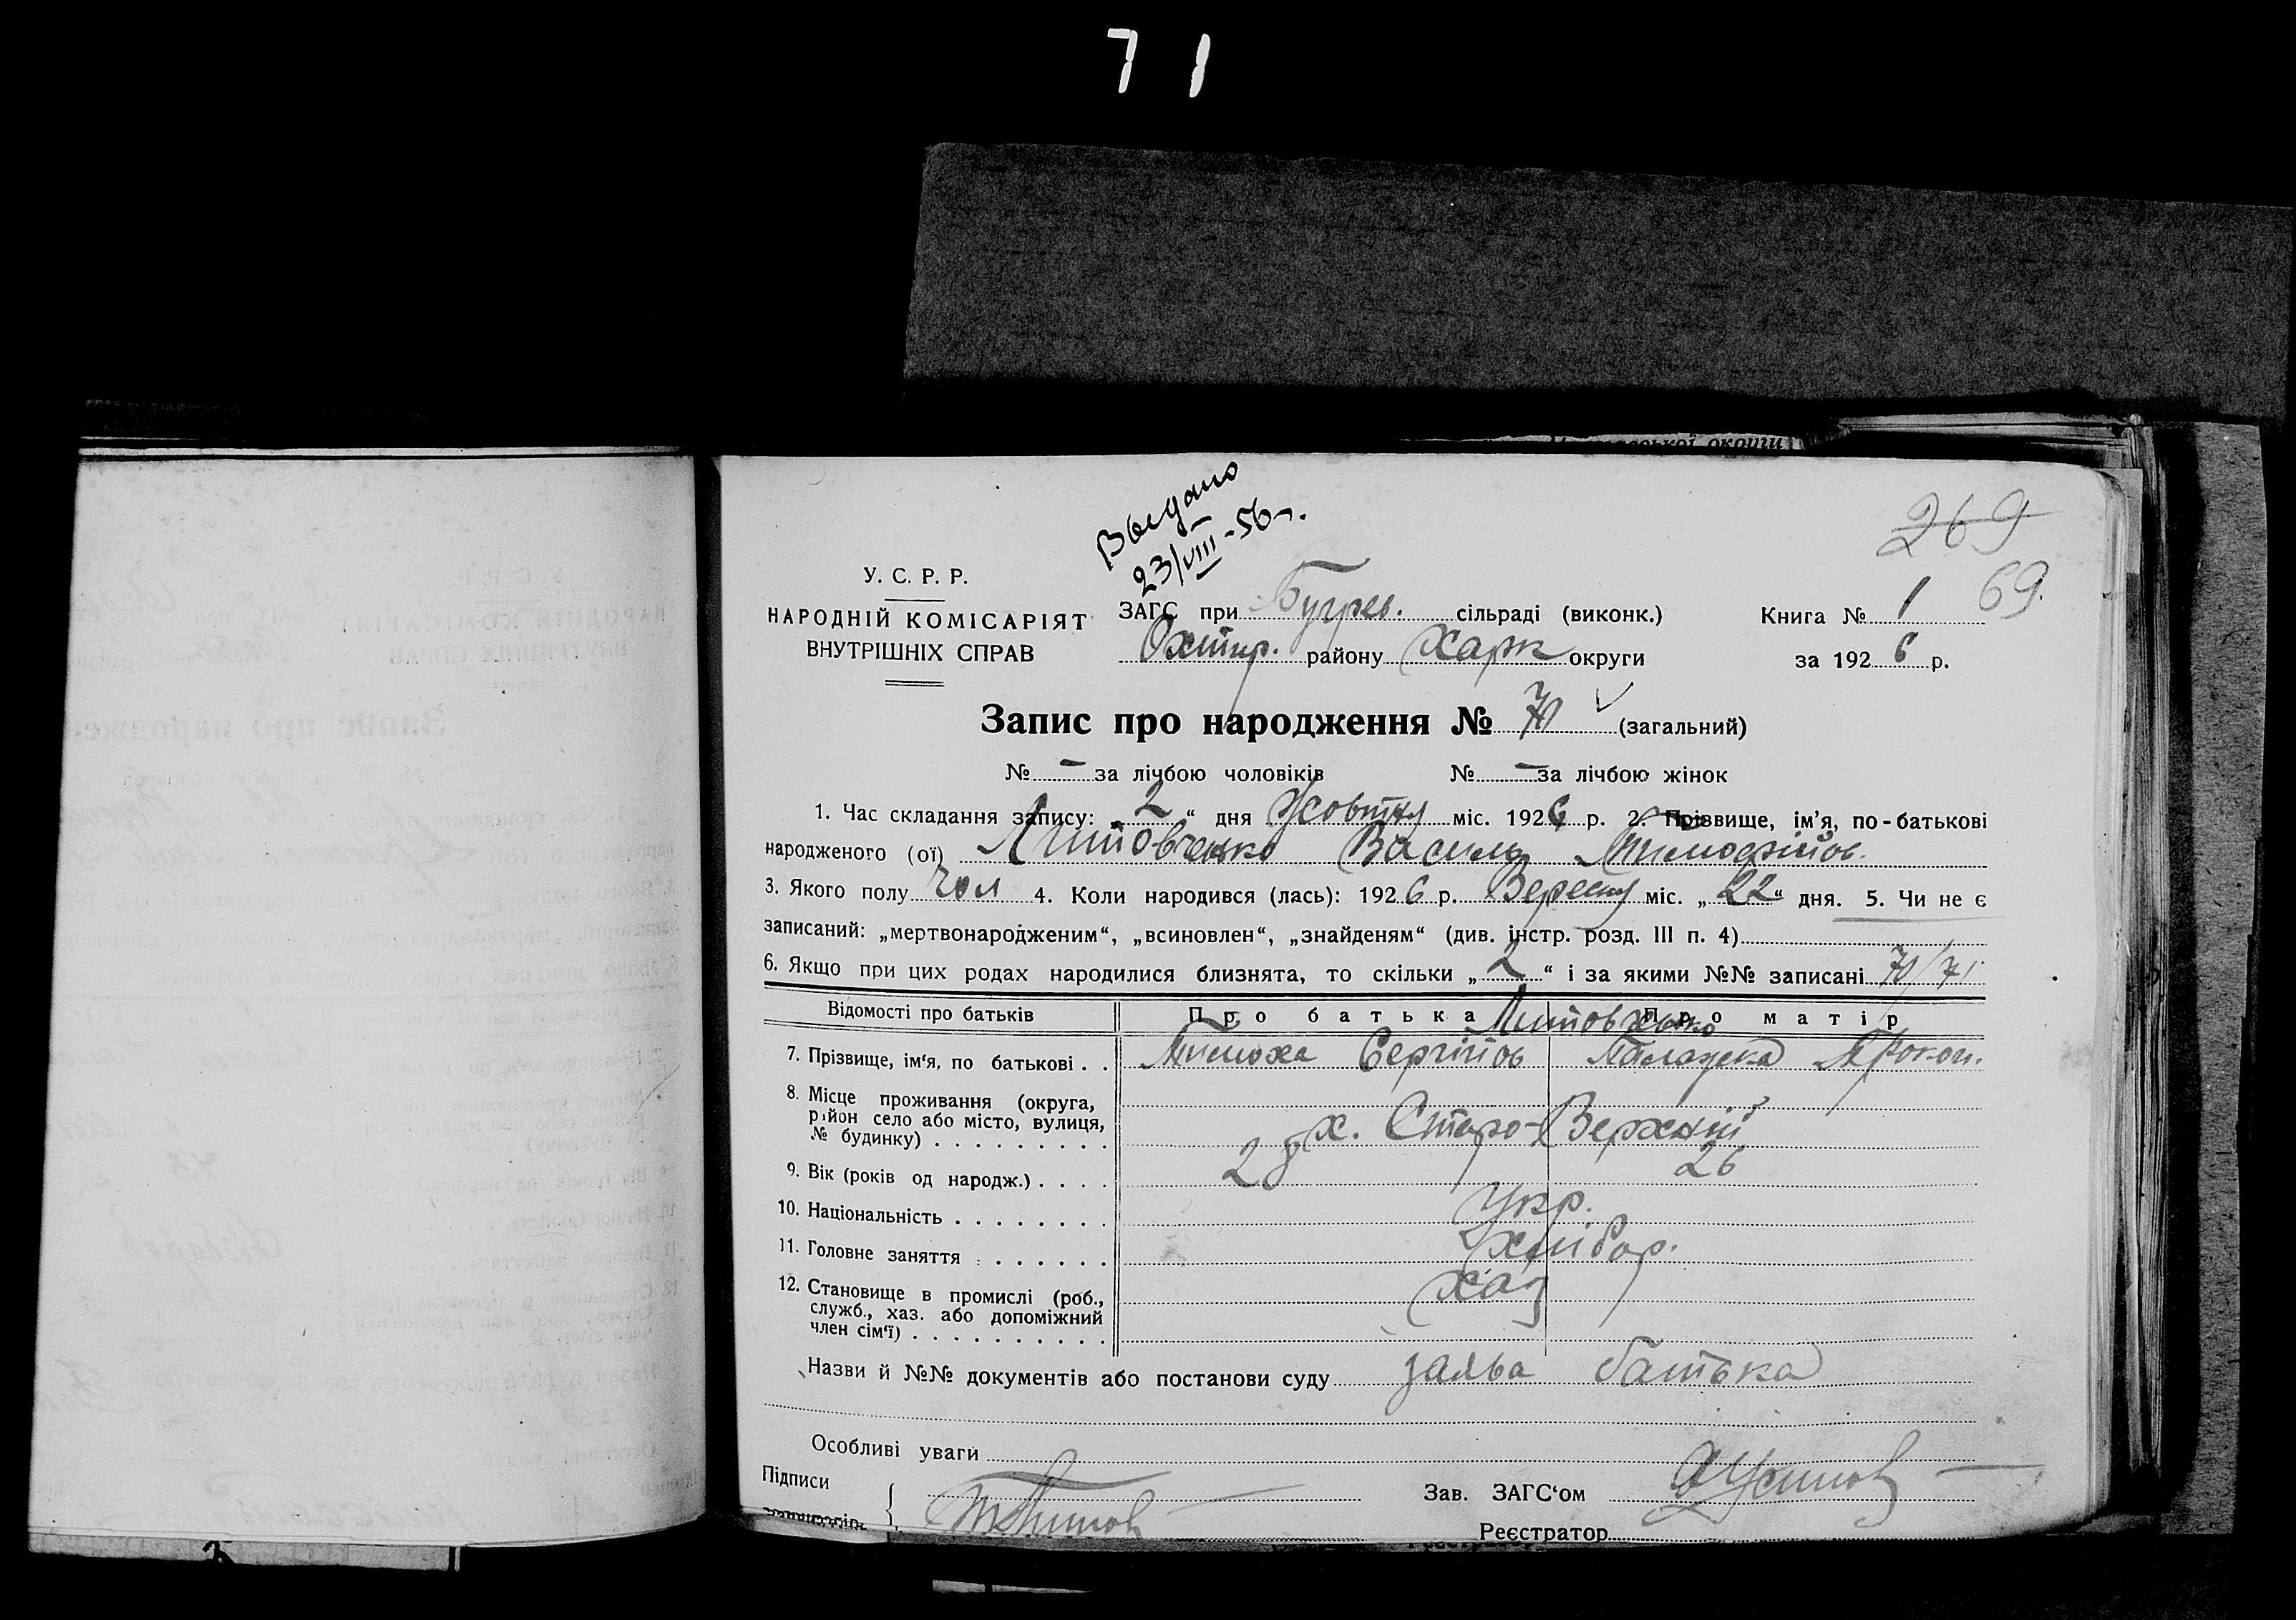 71
Выдано
23/VIII-56 г.
269
69.
У. С. Р. Р.
НАРОДНІЙ КОМІСАРІЯТ
ВНУТРІШНІХ СПРАВ
ЗАГС при Бугрев. сільраді (виконк.)
Охтир. району Харк округи
Книга № 1
за 1926 р.
Запис про народження № 70 (загальний)
№ - за лічбою чоловіків № - за лічбою жінок
1. Час складання запису: 2 " дня Жовтня міс. 1926 р. 2. Прізвище, ім'я, по-батькові
народженого (ої) Литовченко Василь Тимофійов.
3. Якого полу Чол 4. Коли народився (лась): 1926 р. Вересня міс. „22" дня. 5. Чи не є
записаний: „мертвонародженим", „всиновлен", „знайденям" (див. інстр. розд. III п. 4)
6. Якщо при цих родах народилися близнята, то скільки „2" і за якими №№ записані 70/71
Відомості про батьків Про батька Про матір
Литовченко
7. Прізвище, ім'я, по батькові . . Тимоха Сергійов Палажка Прокоп.
8. Місце проживання (округа,
район село або місто, вулиця,
№ будинку) . . . . . . . . . х. Старо-Верхній
9. Вік (років од народж.) . . . . 28 26
10. Національність . . . . . . . . Укр.
11. Головне заняття . . . . . . . Хлібор.
12. Становище в промислі (роб.,
служб., хаз. або допоміжний
член сім'ї) . . . . . . . . . . Хаз
Назви й №№ документів або постанови суду заява батька
Особливі уваги
Підписи
Зав. ЗАГС'ом
Реєстратор